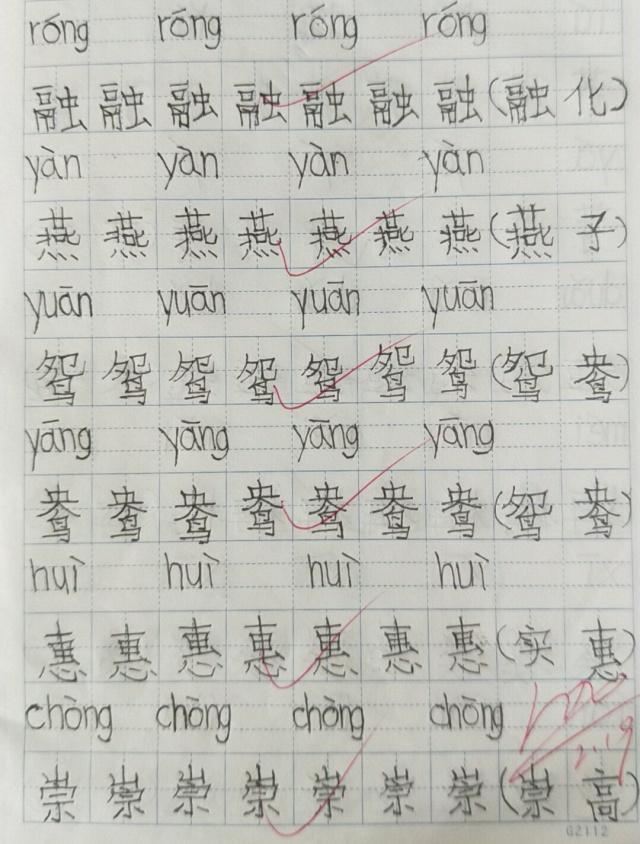 róng róng róng róng
融 融 融 融 融 融 融 (融 化)
yàn yàn yàn yàn
燕 燕 燕 燕 燕 燕 燕 (燕 子)
yuān yuān yuān yuān
鸳 鸳 鸳 鸳 鸳 鸳 鸳 (鸳 鸯)
yāng yāng yāng yāng
鸯 鸯 鸯 鸯 鸯 鸯 鸯 (鸳 鸯)
huì huì huì huì
惠 惠 惠 惠 惠 惠 惠 (实 惠)
chòng chòng chòng chòng
崇 崇 崇 崇 崇 崇 崇 (崇 高)
2.19
G2112